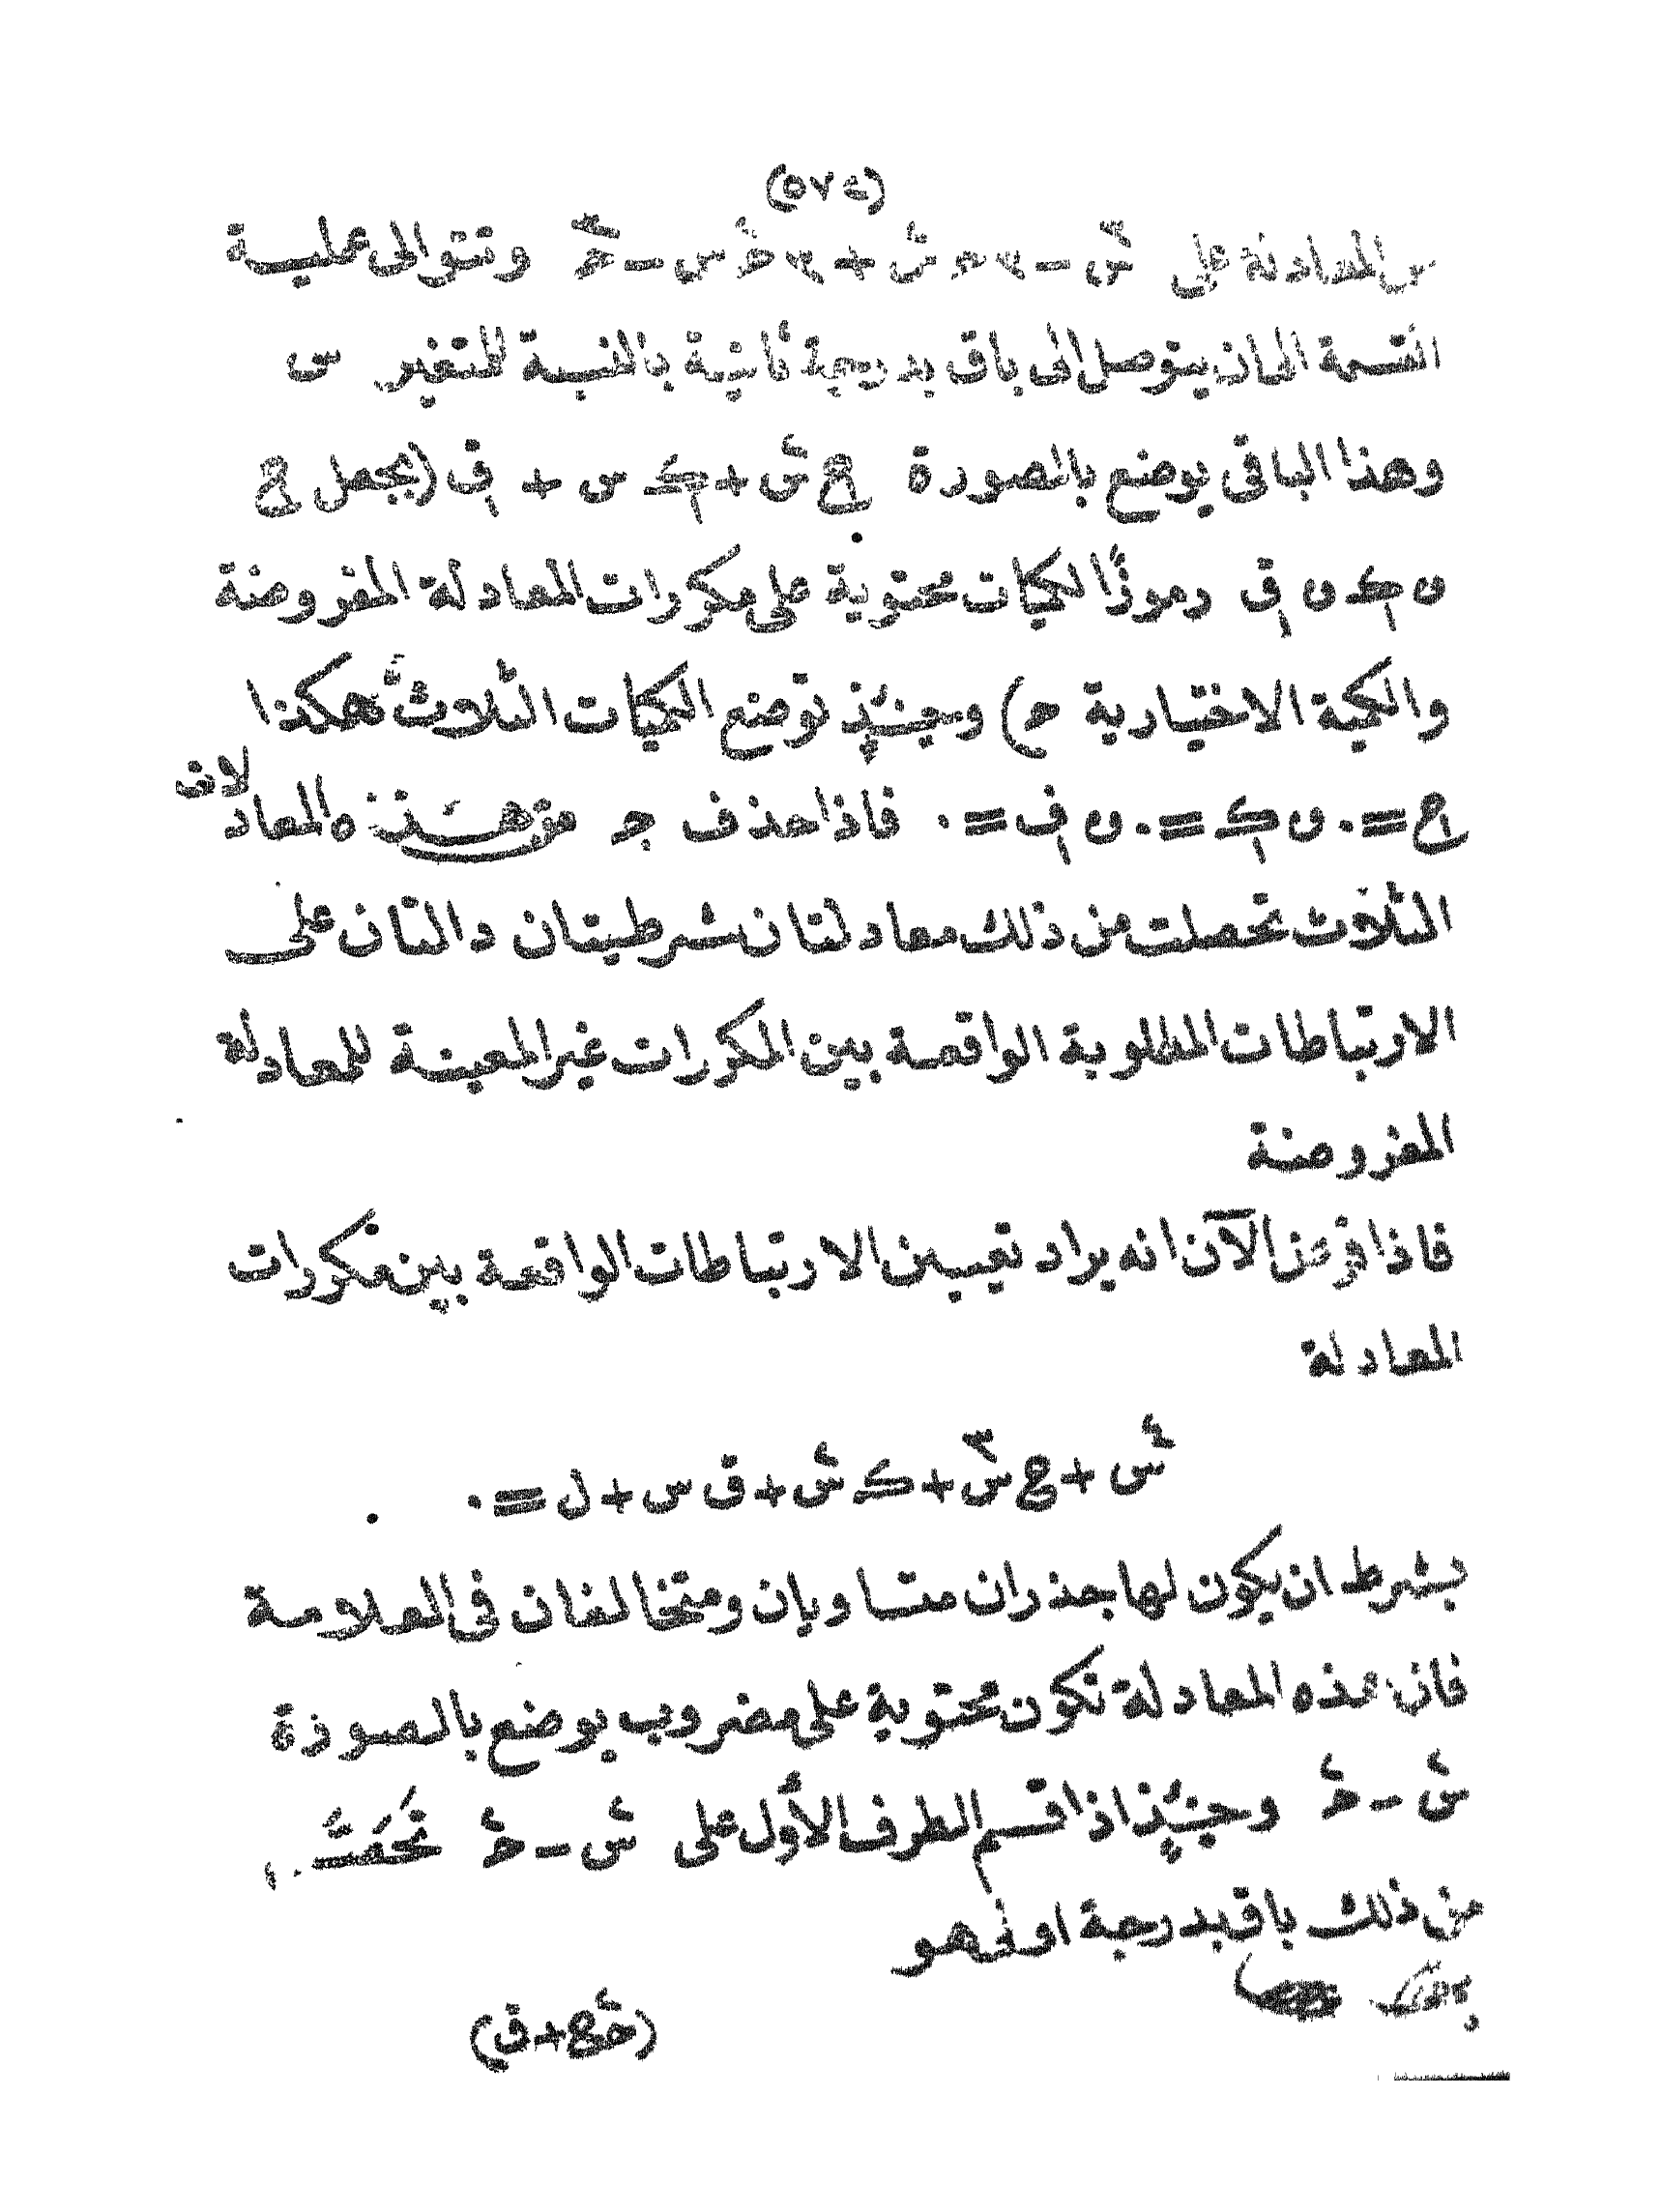 (٥٧٤)
من المعادلة على س٣ - ٣ ح س٢ + ٣ ح٢ س - ح٣ وتتوالى عمليـة
القسمة الى ان يتوصل الى باق بدرجة ثانية بالنسبة للمتغير س
وهذا الباقى يوضع بالصورة ج١ س٢ + ك١ س + ق١ (بجعل ج١
و ك١ و ق١ رموزًا لكميات محتوية على مكررات المعادلة المفروضة
والكمية الاختيارية ح) وحينئذ توضع الكميات الثلاث هكذا
ج١ = ٠ و ك١ = ٠ و ق١ = ٠ فاذا حذف ح من هـذه المعادلات
الثلاث تحصلت من ذلك معادلتان شرطيتان دالتان على
الارتباطات المطلوبة الواقعة بين المكررات غير المعينة للمعادلة
المفروضة
فاذا فرض الآن انه يراد تعيين الارتباطات الواقعة بين مكررات
المعادلة
س٤ + ج س٣ + ك س٢ + ق س + ل = ٠
بشرط ان يكون لها جذران متساويان ومتخالفان فى العلامة
فان هذه المعادلة تكون محتوية على مضروب يوضع بالصورة
س٢ - ح٢ وحينئذ اذا قسم الطرف الأول على س٢ - ح٢
من ذلك باق بدرجة اولى هو
(ح٢ ج + ق)